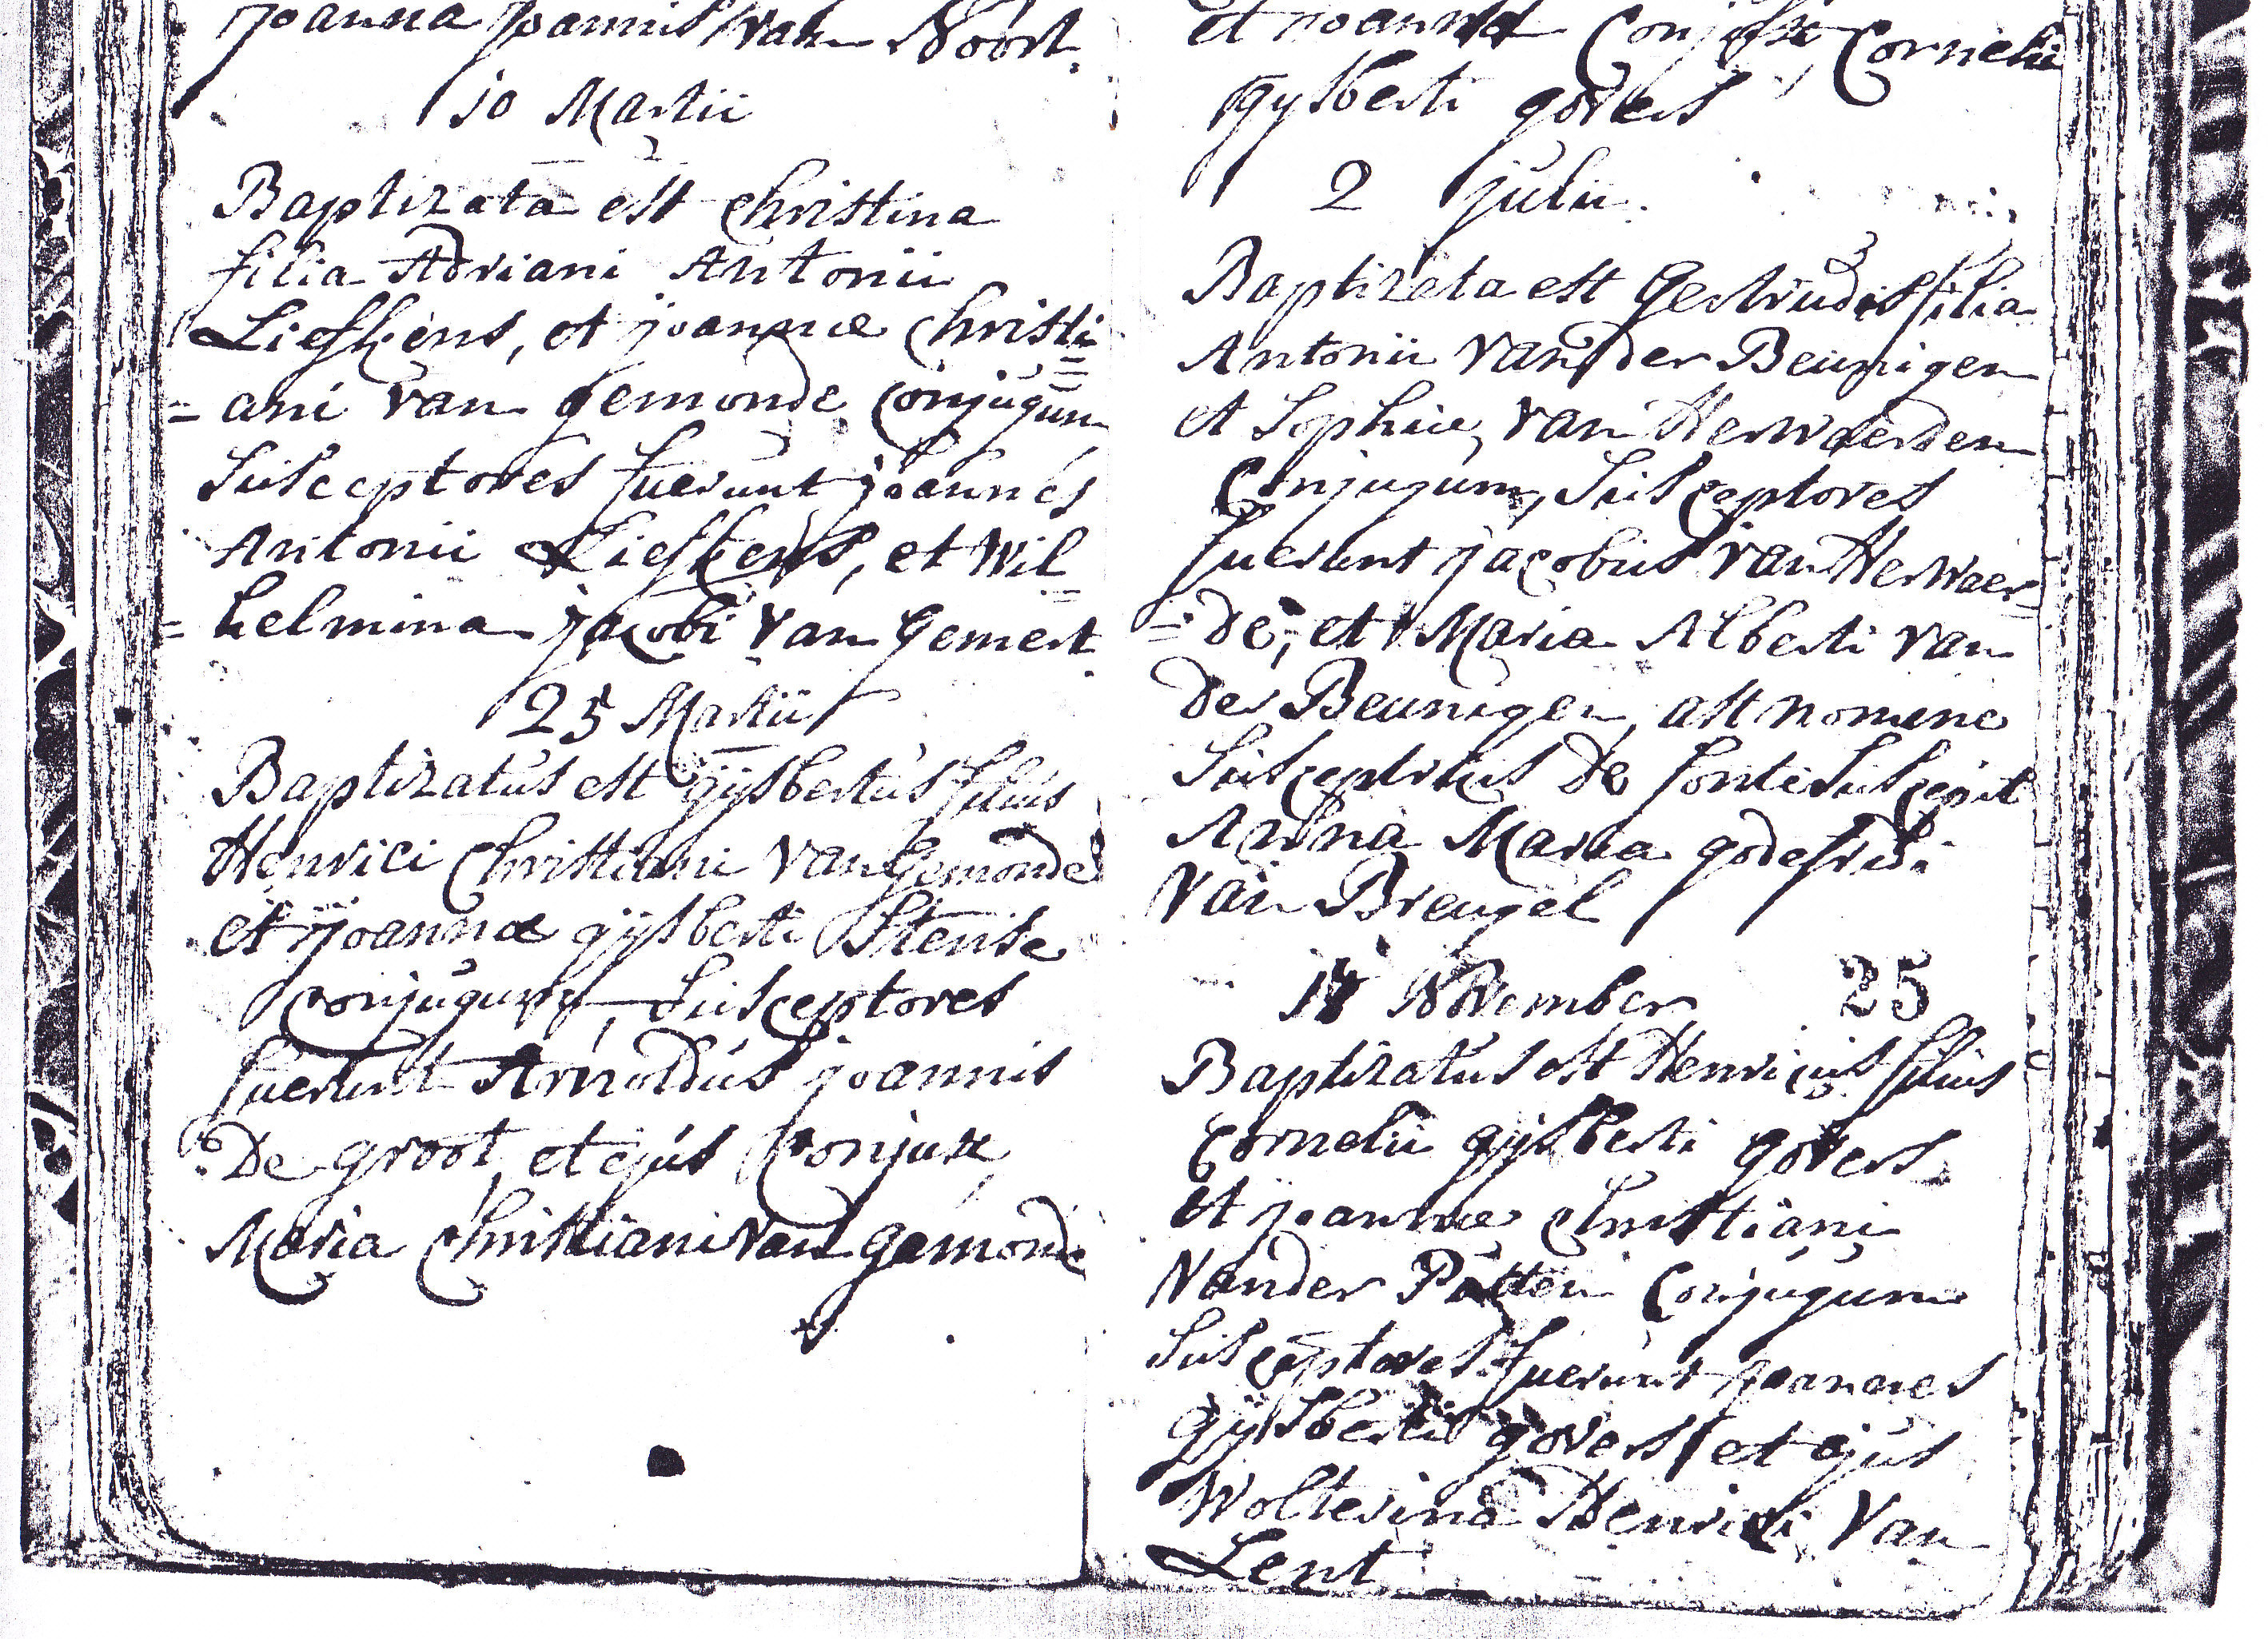 Joanna Joannis van Noort.
10 Martii
Baptizata est Christina
filia Adriani Antonii
Liefkens, et joannæ Christi=
=ani van gemonde Conjugum
Susceptores fuerunt joannes
Antonii Liefkens, et Wil=
=helmina jacobi van gemert.
25 Martii
Baptizatus est gijsbertus filius
Henrici Christiani van gemonde
et joannæ gijsberti Stense
conjugum, Susceptores
fuerunt Arnoldus joannis
De groot, et ejus Conjux
Maria Christiani van gemonde
et joanna Conjux Cornelii
gysberti govers
2 julii.
Baptizata est gertrudis filia
Antonii van der Beunigen
et Sophiæ van Herwaerden
Conjugum, Susceptores
fuerunt jacobus van Herwaer=
=de, et Maria Alberti van
der Beunigen, ast nomine
Susceptricis de fonte Suscepit
Anna Maria godefridi
van Breugel
November 25
Baptizatus est Henricus filius
Cornelii gijsberti govers
et joannæ Christiani
Vander Putten Conjugum
Susceptores fuerunt joannes
gijsberti govers et ejus
Wolterina Henrici Van
Lent